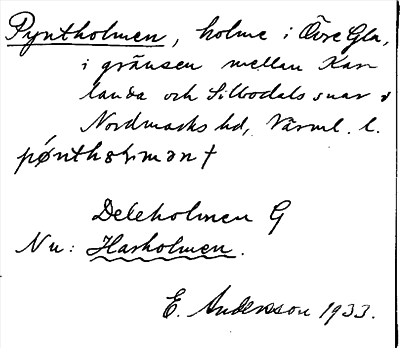 Pyntholmen, holme i Övre Gla,
i gränsen mellan Kar-
landa och Silbodals snar i
Nordmarks hd, Värml. l.
pǿnthɵrmən †
Deleholmen G
Nu: Harholmen.
E. Andersson 1933.